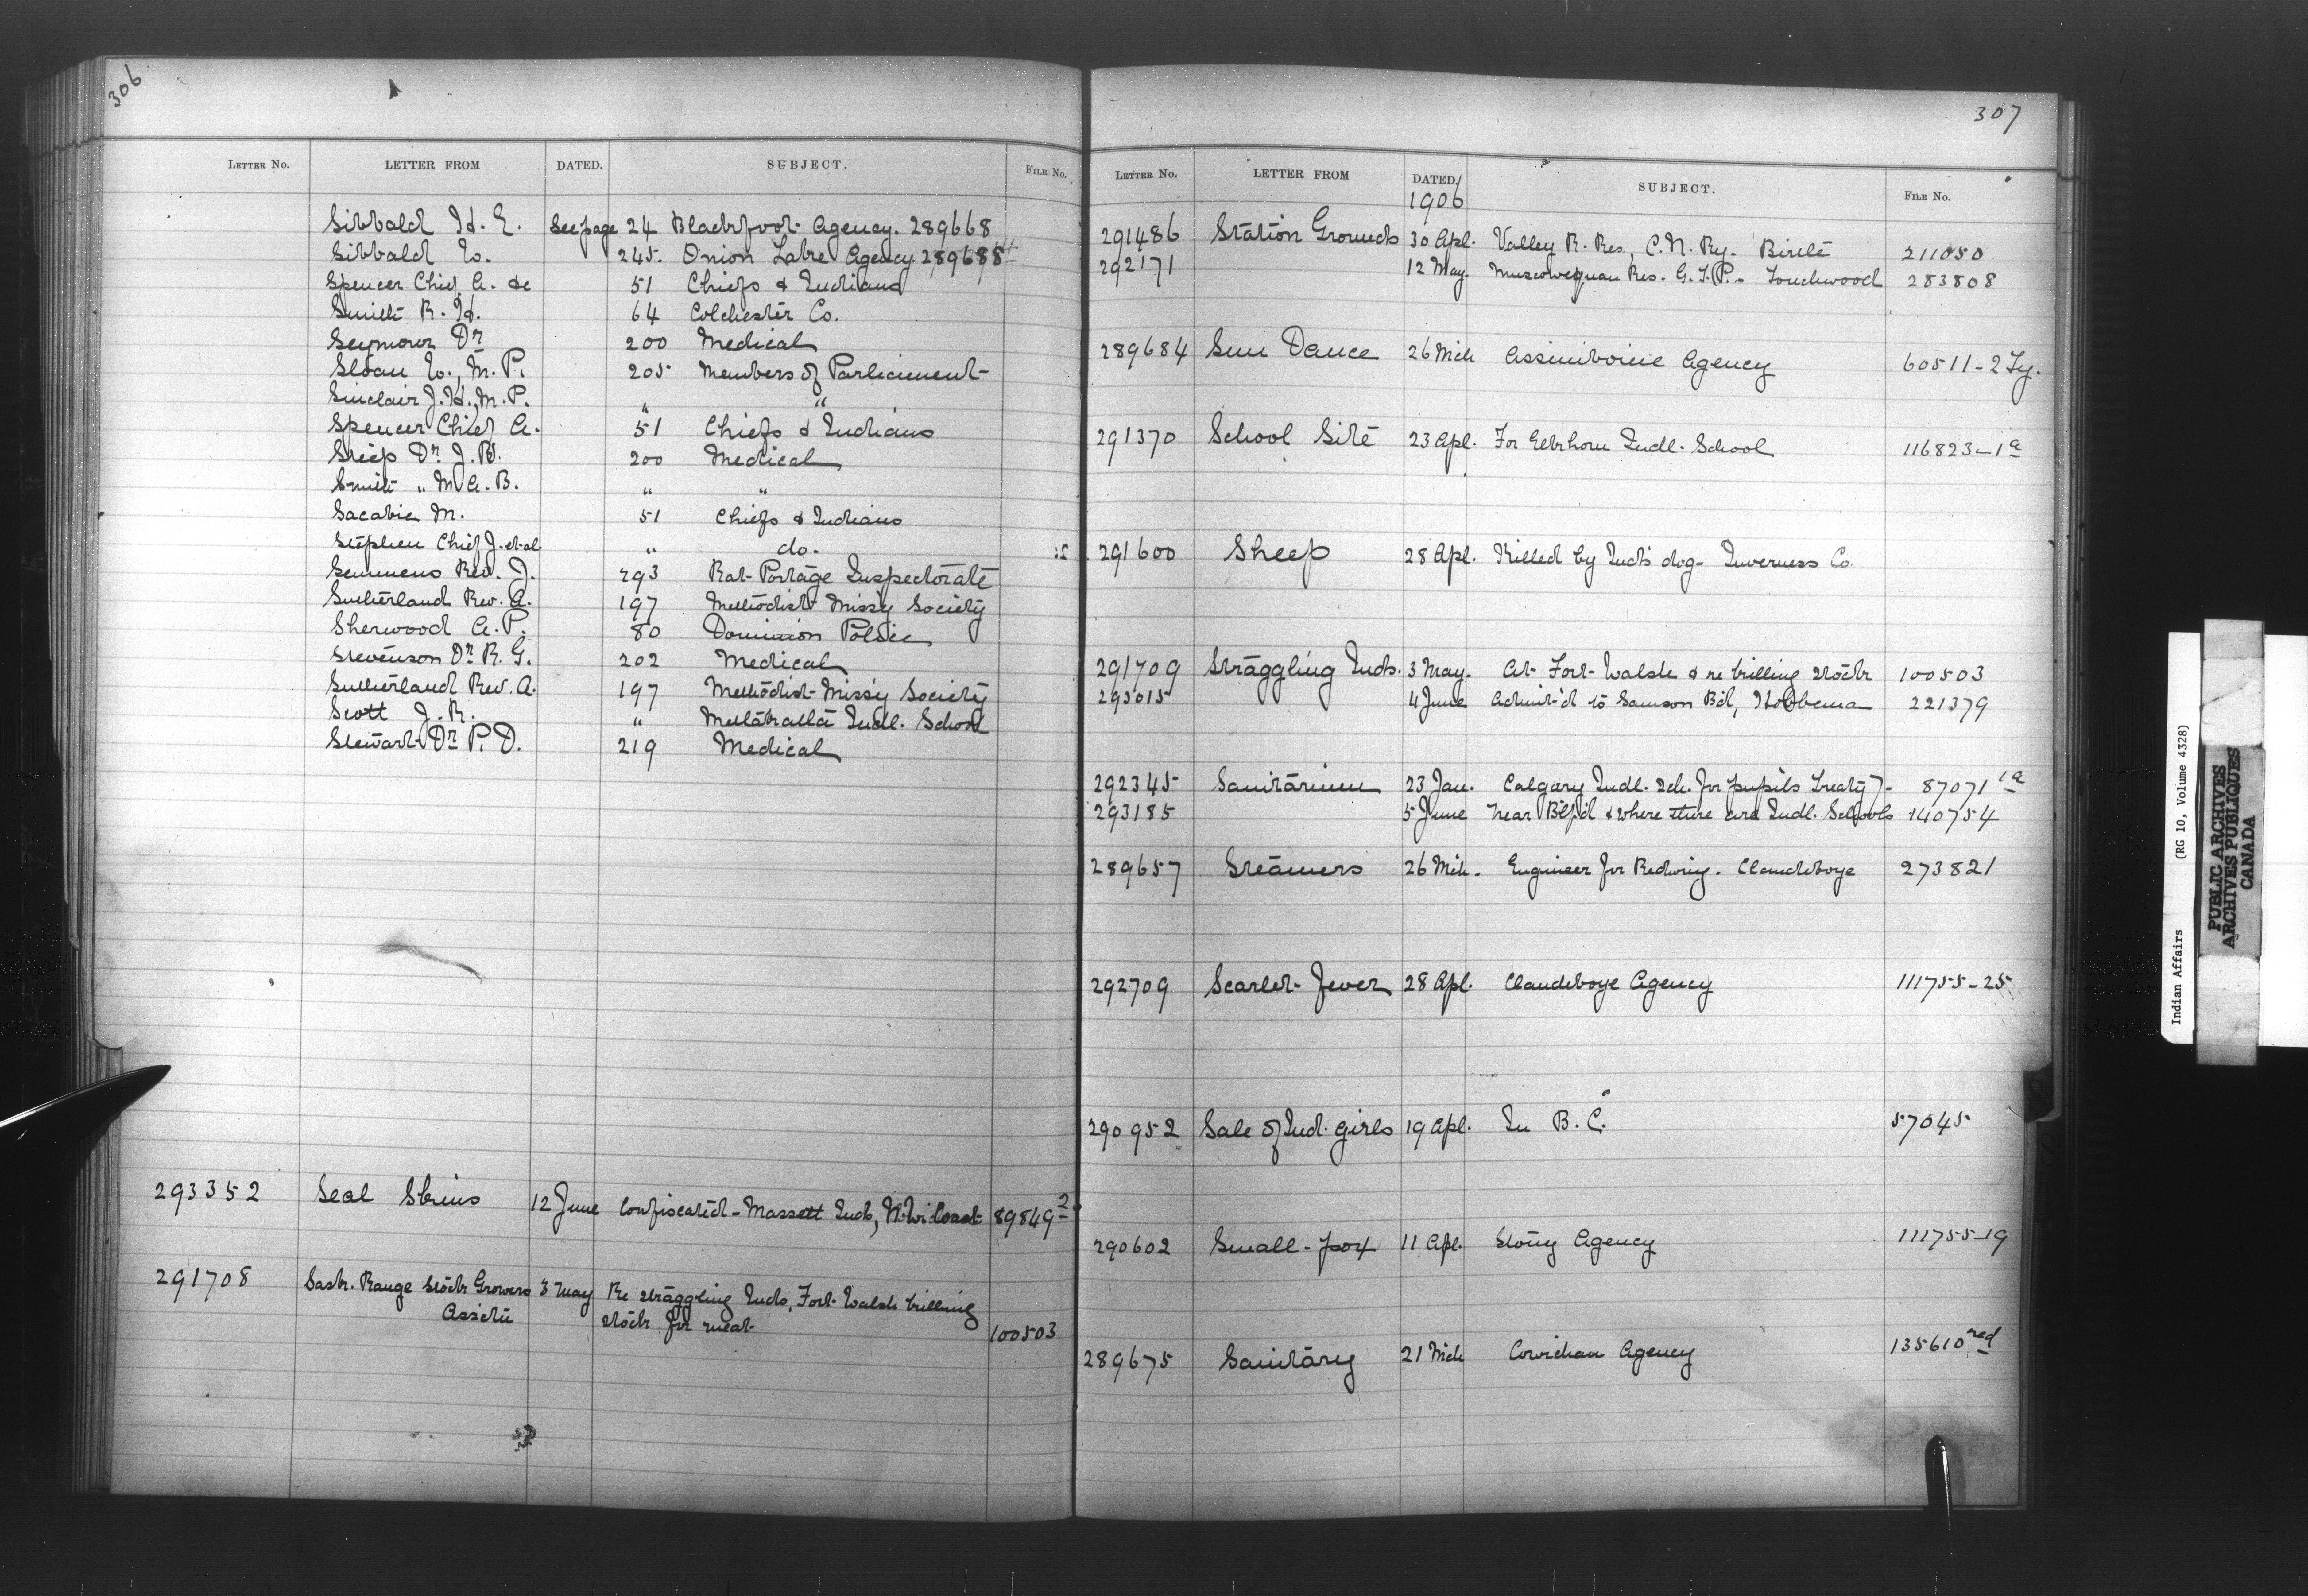 306
LETTER NO. LETTER FROM DATED. SUBJECT. FILE No.
Sibbald H. E. See page 24 Blackfoot Agency. 289668
Sibbald W. 245. Onion Lake Agency. 289688
Spencer Chief A. &c 51 Chiefs & Indians
Smith R. H. 64 Colchester Co.
Seymour Dr 200 Medical
Sloan W., M. P. 205 Members of Parliament
Sinclair J. H., M. P. " "
Spencer Chief A. 51 Chiefs & Indians
Dr J. 200 Medical
Smith " M. A. B. " "
Sacabie M. 51 Chiefs & Indians
Stephen Chief J. et al " do.
Semmens Rev. J. 293 Rat Portage Inspectorate
Sutherland Rev. A. 197 Methodist Miss'y Society
Sherwood A. P. 80 Dominion Police
Stevenson Dr R. G. 202 Medical
Sutherland Rev. A. 197 Methodist Miss'y Society
Scott J. R. " Metlakatla Indl. School
Stewart Dr P. D. 219 Medical
293352 Seal Skins 12 June Confiscated - Massett Inds, N. W. Coast 89849-2
291708 Sask. Range Stock Growers 3 May Re straggling Inds, Fort Walsh killing
Ass'tn stock for meat 100503
307
LETTER NO. LETTER FROM DATED. SUBJECT. FILE No.
1906
291486 Station Grounds 30 Apl. Valley R. Res., C. N. Ry. Birtle 211050
292171 12 May. Muscowequan Res. G. T. P. - Touchwood 283808
289684 Sun Dance 26 Mch Assiniboine Agency 60511-2 Ty.
291370 School Site 23 Apl. For Elkhorn Indl. School 116823-1a
291600 Sheep 28 Apl. Killed by Ind's dog - Inverness Co.
291709 Straggling Inds. 3 May. At Fort Walsh & re killing stock 100503
293015 4 June Admit'd to Samson Bd, Hobbema 221379
292345 Sanitarium 23 Jan. Calgary Indl. Sch. for pupils Treaty 7 - 87071 1a
293185 5 June Near B'lf'd & where there are Indl. Schools 140754
289657 Steamers 26 Mch. Engineer for Redwing. Clandeboye 273821
292709 Scarlet Fever 28 Apl. Clandeboye Agency 111755-25
290952 Sale of Ind. girls 19 Apl. In B. C. 57045
290602 Small-pox 11 Apl. Stony Agency 111755-19
289675 Sanitary 21 Mch Cowichan Agency 135610 red
Indian Affairs (RG 10, Volume 4328)
PUBLIC ARCHIVES
ARCHIVES PUBLIQUES
CANADA